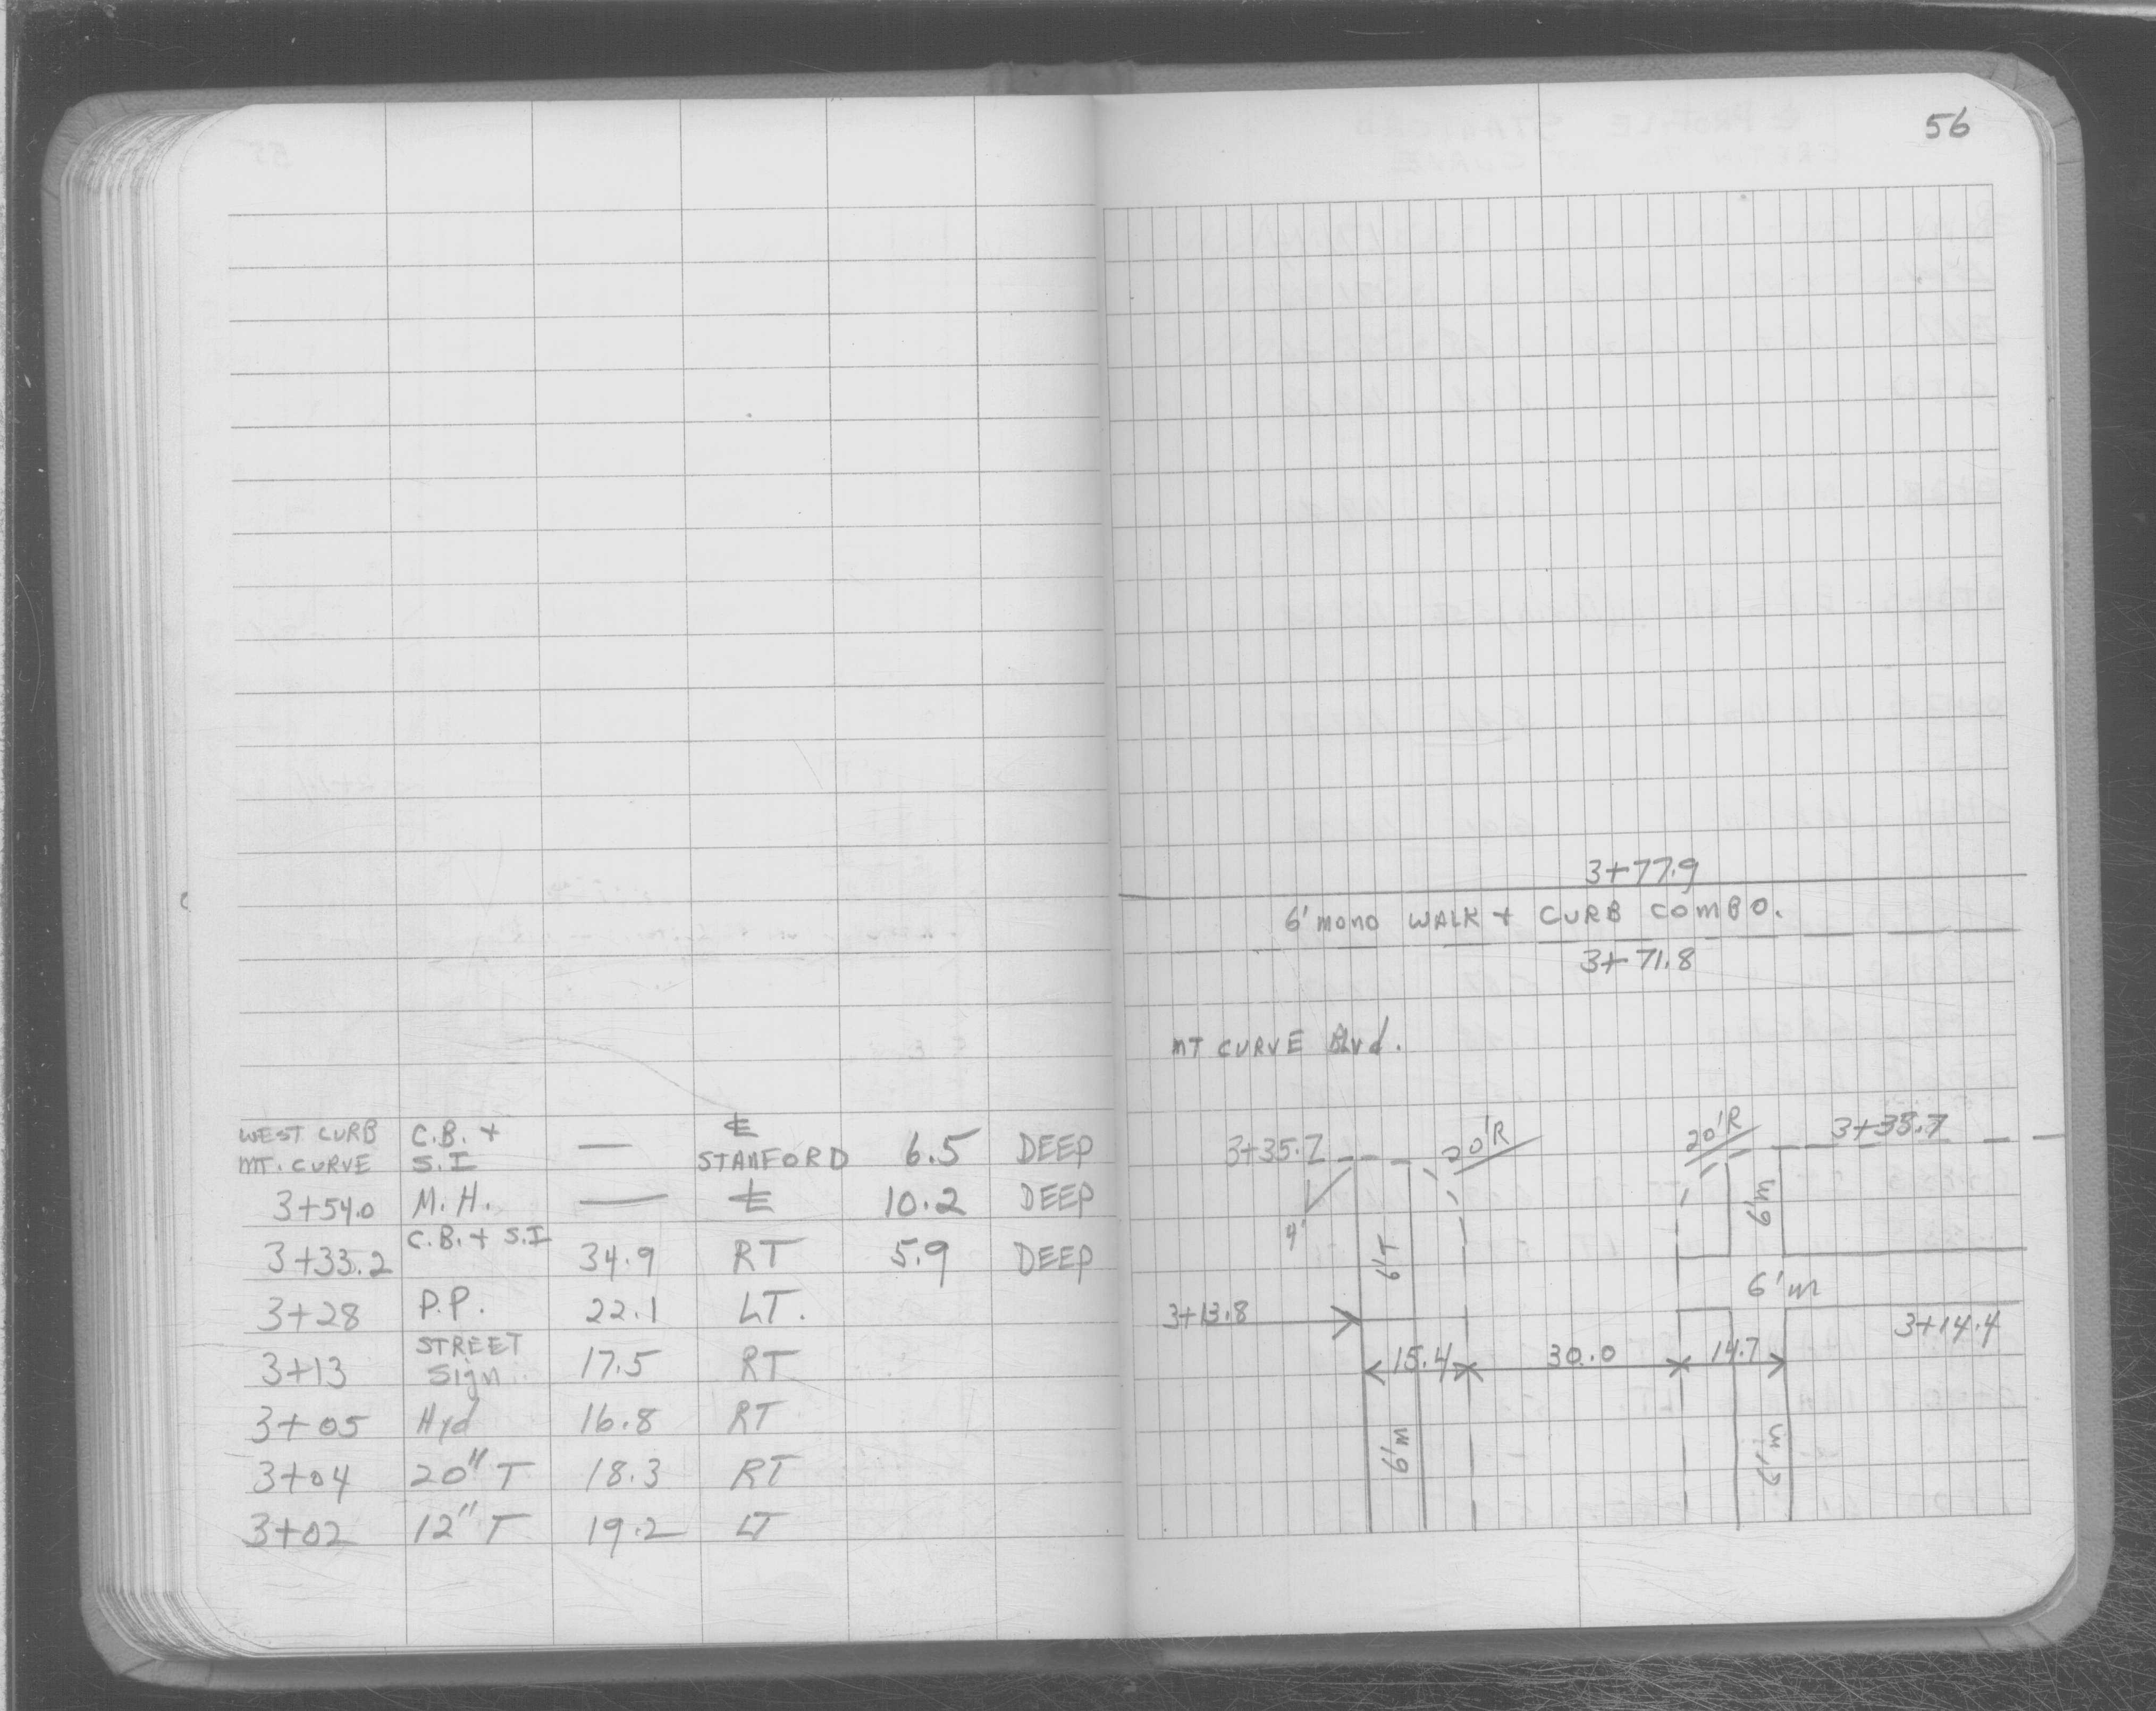 56
WEST CURB C.B. + — ℄ 6.5 DEEP
MT. CURVE S.I STANFORD
3+54.0 M.H. — ℄ 10.2 DEEP
3+33.2 C.B. + S.I 34.9 RT 5.9 DEEP
3+28 P.P. 22.1 LT.
3+13 STREET Sign 17.5 RT
3+05 Hyd 16.8 RT
3+04 20" T 18.3 RT
3+02 12" T 19.2 LT
3+77.9
6' mono WALK + CURB COMBO.
3+71.8
MT CURVE Blvd.
3+35.7 20'R 20'R 3+35.7
4'
6'T 6'm
6'm
3+13.8 3+14.4
15.4 30.0 14.7
6'm 6'm